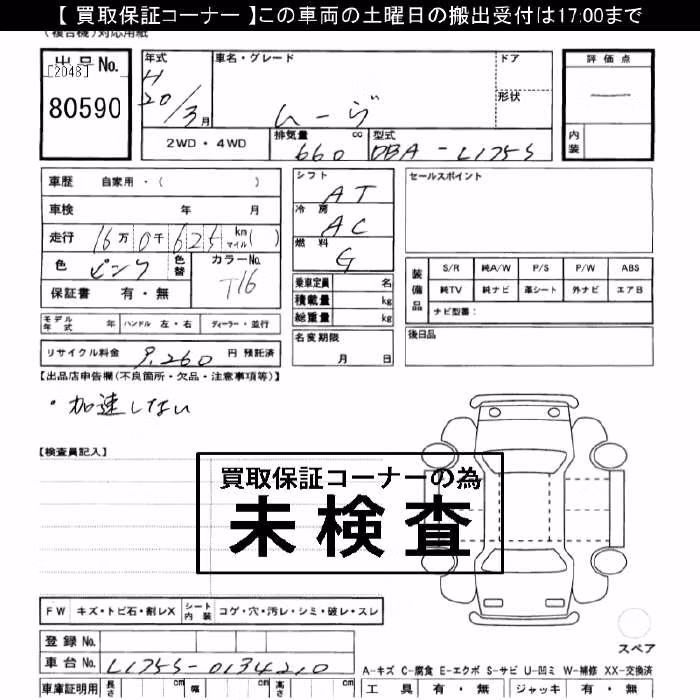 【 買取保証コーナー 】この車両の土曜日の搬出受付は17:00まで
(複合機)対応用紙
出品No.
[2048]
80590
年式
H
20/3月
車名・グレード
ムーヴ
ドア
形状
評価点
内装
2WD・4WD
排気量 cc
660
型式
DBA-L175S
車歴 自家用・( )
車検 年 月
走行 16万0千625 km マイル( )
色 ピンク 色替 カラーNo. T16
保証書 有・無
シフト AT
冷房 AC
燃料 G
乗車定員 名
積載量 kg
総重量 kg
セールスポイント
装備品 S/R 純A/W P/S P/W ABS
純TV 純ナビ 革シート 外ナビ エアB
ナビ型番:
モデル年式 年 ハンドル 左・右 ディーラー・並行
名変期限
月 日
後日品
リサイクル料金 9,260 円 預託済
【出品店申告欄(不良箇所・欠品・注意事項等)】
・加速しない
【検査員記入】
買取保証コーナーの為
未検査
FW キズ・トビ石・割レX シート内装 コゲ・穴・汚レ・シミ・破レ・スレ
スペア
登録No.
車台No. L175S-0134210
A-キズ C-腐食 E-エクボ S-サビ U-凹ミ W-補修 XX-交換済
車庫証明用 長さ cm 幅 cm 高さ cm
工具 有・無 ジャッキ 有・無